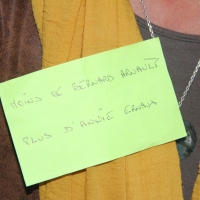 MOINS DE BERNARD ARNAULT
PLUS D'ANNIE ERNAUX